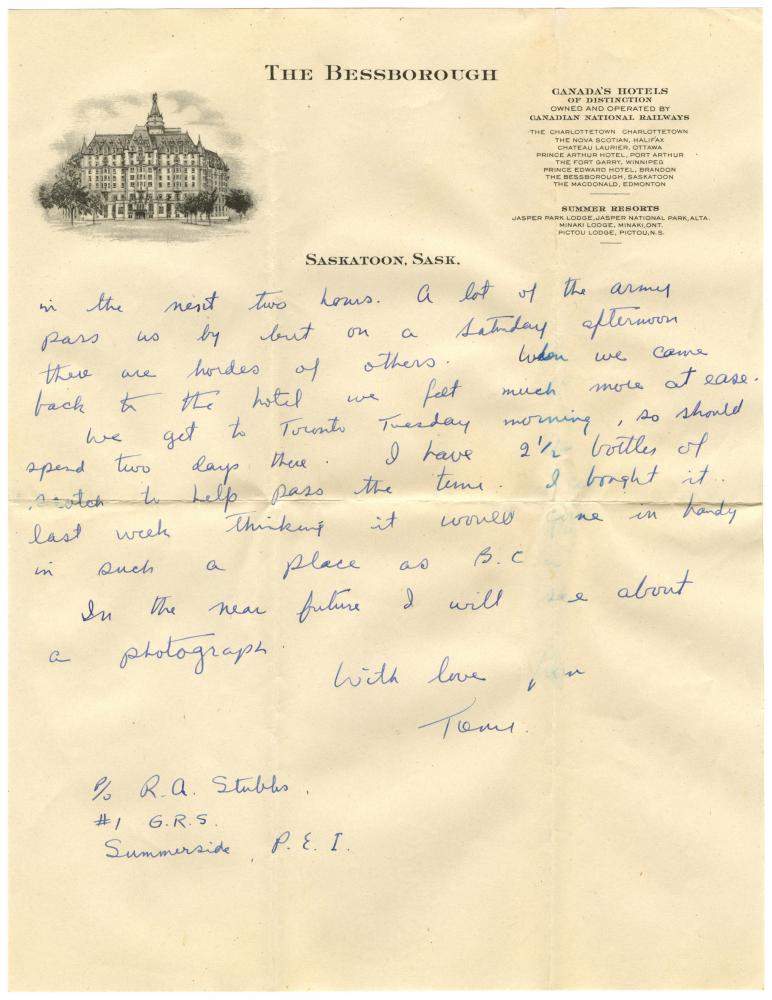 THE BESSBOROUGH
CANADA'S HOTELS
OF DISTINCTION
OWNED AND OPERATED BY
CANADIAN NATIONAL RAILWAYS
THE CHARLOTTETOWN CHARLOTTETOWN
THE NOVA SCOTIAN, HALIFAX
CHATEAU LAURIER, OTTAWA
PRINCE ARTHUR HOTEL, PORT ARTHUR
THE FORT GARRY, WINNIPEG
PRINCE EDWARD HOTEL, BRANDON
THE BESSBOROUGH, SASKATOON
THE MACDONALD, EDMONTON
SUMMER RESORTS
JASPER PARK LODGE, JASPER NATIONAL PARK, ALTA.
MINAKI LODGE, MINAKI, ONT.
PICTOU LODGE, PICTOU, N.S.
SASKATOON, SASK.
in the next two hours. A lot of the army
pass us by but on a Saturday afternoon
there are hordes of others. When we came
back to the hotel we felt much more at ease.
We get to Toronto Tuesday morning, so should
spend two days there. I have 2 1/2 bottles of
scotch to help pass the time. I bought it
last week thinking it would in handy
in such a place as B.C
In the near future I will about
a photograph.
With love
Tom.
P/O R.A. Stubbs,
#1 G.R.S.
Summerside, P.E.I.